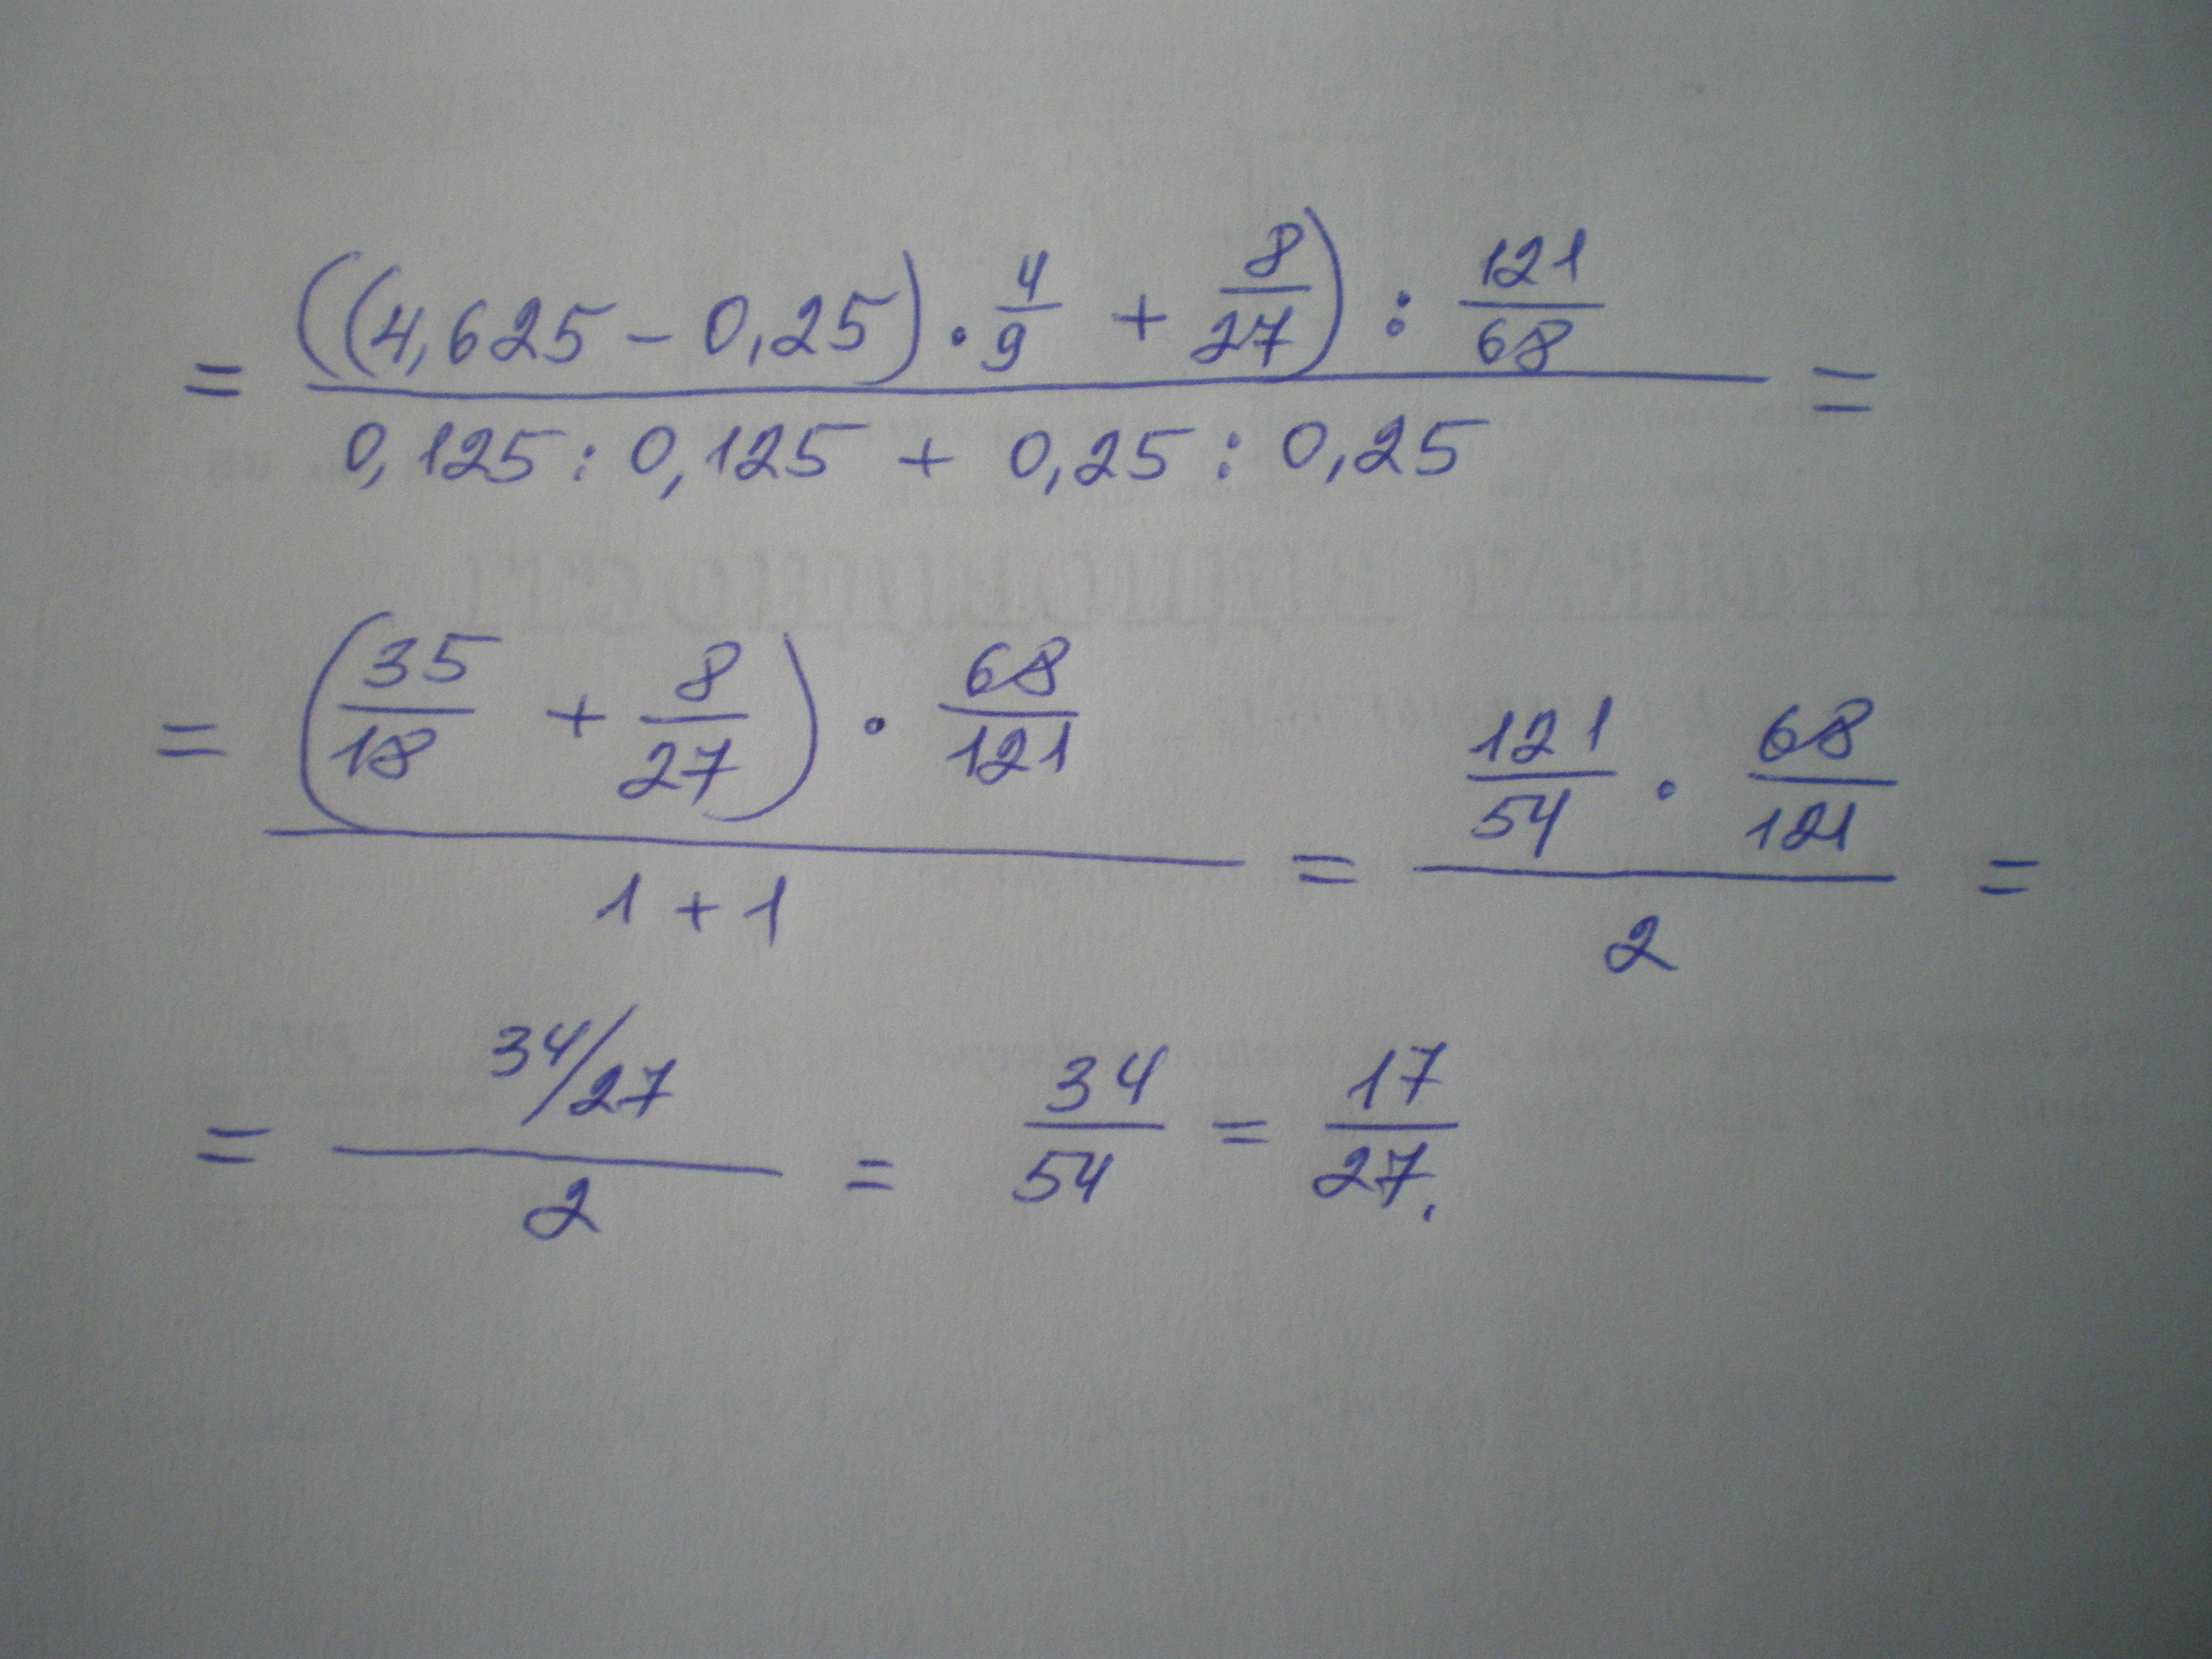 = ((4,625 - 0,25) · 4/9 + 8/27) : 121/68 =
0,125 : 0,125 + 0,25 : 0,25
= (35/18 + 8/27) · 68/121 = 121/54 · 68/121 =
1 + 1 2
= 34/27 = 34/54 = 17/27.
2